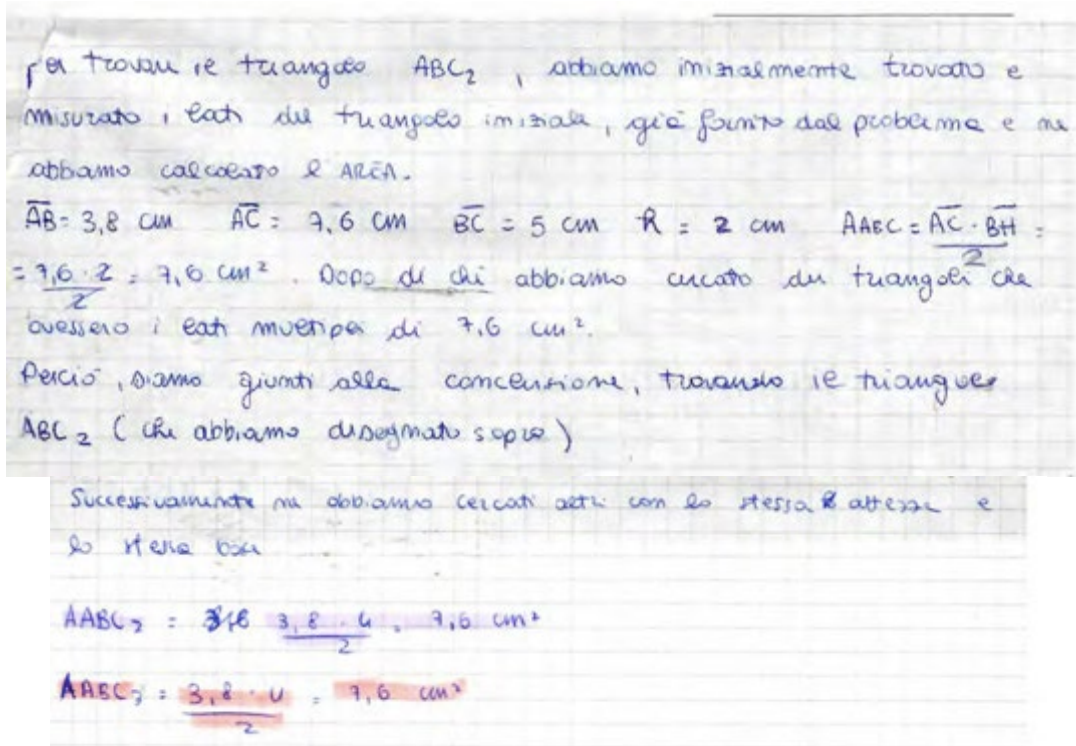 per trovare il triangolo ABC₂ , abbiamo inizialmente trovato e
misurato i lati del triangolo iniziale, già fornito dal problema e ne
abbiamo calcolato l'AREA.
AB = 3,8 cm AC = 7,6 cm BC = 5 cm h = 2 cm AABC = AC · BH / 2 =
= 7,6 · 2 / 2 = 7,6 cm² . Dopo di chi abbiamo cercato dei triangoli che
avessero i lati multipli di 7,6 cm².
Perciò, siamo giunti alla conclusione, trovando il triangolo
ABC₂ ( che abbiamo disegnato sopra )
Successivamente ne abbiamo cercati altri con la stessa altezza e
la stessa base
AABC₂ = 3,8 · 4 / 2 = 7,6 cm²
AABC₃ = 3,8 · 4 / 2 = 7,6 cm²